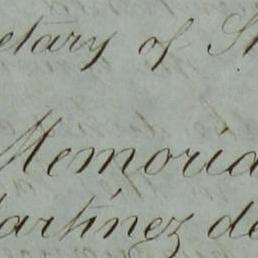 etary of St
Memoria
Martinez de